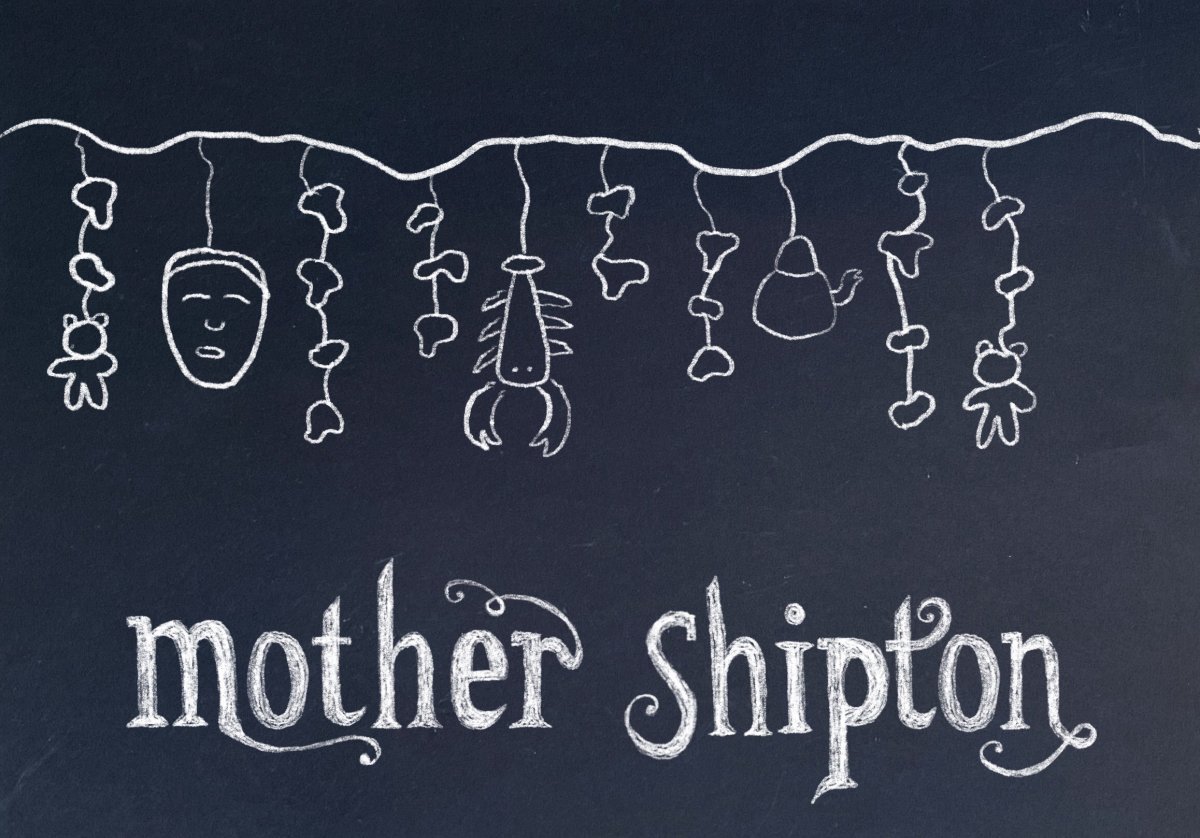 mother shipton